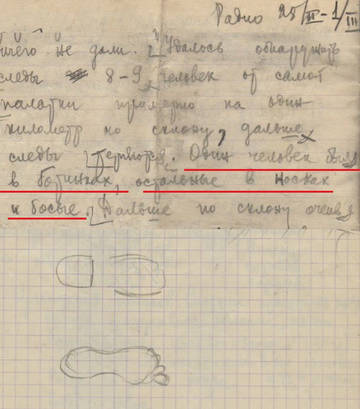 Радио 25/II - 1/III
ничего не дали. Удалось обнаружить
следы 8-9 человек от самой
палатки примерно на один
километр по склону, дальше
следы теряются. Один человек был
в ботинках, остальные в носках
и босые. Дальше по склону очень